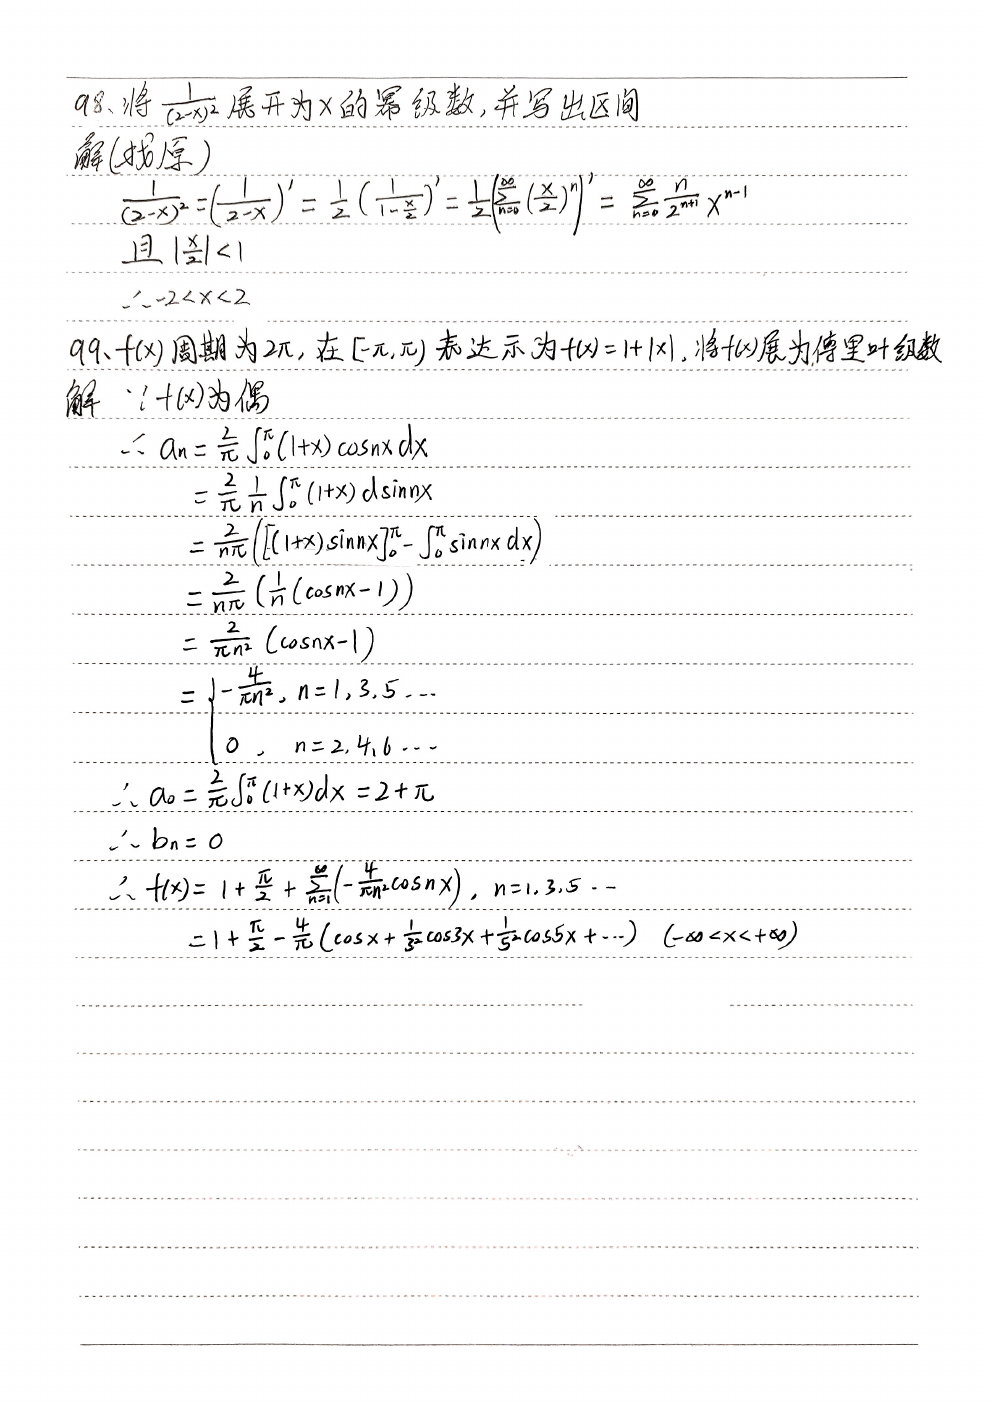 98、将 1/(2-x)² 展开为x的幂级数,并写出区间
解(找原)
1/(2-x)² = (1/(2-x))' = 1/2 (1/(1-x/2))' = 1/2 (∑_{n=0}^{∞} (x/2)^n)' = ∑_{n=0}^{∞} n/2^{n+1} x^{n-1}
且 |x/2| < 1
∴ -2<x<2
99、f(x)周期为2π, 在[-π,π)表达示为f(x)=1+|x|, 将f(x)展为傅里叶级数
解 ∵ f(x)为偶
∴ an = 2/π ∫_0^π (1+x) cosnx dx
= 2/π 1/n ∫_0^π (1+x) dsinnx
= 2/nπ ([(1+x)sinnx]_0^π - ∫_0^π sinnx dx)
= 2/nπ (1/n (cosnx-1))
= 2/πn² (cosnx-1)
= { -4/πn², n=1,3,5...
0, n=2,4,6...
∴ a0 = 2/π ∫_0^π (1+x)dx = 2+π
∴ bn = 0
∴ f(x) = 1 + π/2 + ∑_{n=1}^{∞} (-4/πn² cosnx), n=1,3,5...
= 1 + π/2 - 4/π (cosx + 1/3² cos3x + 1/5² cos5x + ...) (-∞<x<+∞)